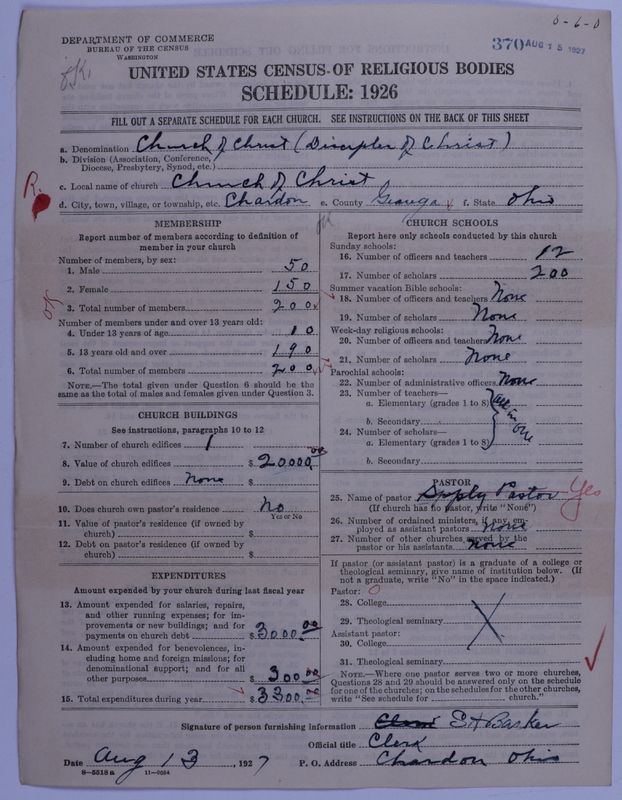 0-6-0
DEPARTMENT OF COMMERCE
BUREAU OF THE CENSUS
WASHINGTON
370 AUG 15 1927
OK
UNITED STATES CENSUS OF RELIGIOUS BODIES
SCHEDULE: 1926
FILL OUT A SEPARATE SCHEDULE FOR EACH CHURCH. SEE INSTRUCTIONS ON THE BACK OF THIS SHEET
a. Denomination Church of Christ (Disciples of Christ)
b. Division (Association, Conference,
Diocese, Presbytery, Synod, etc.)
c. Local name of church Church of Christ
R.
d. City, town, village, or township, etc. Chardon e. County Geauga f. State Ohio
MEMBERSHIP
Report number of members according to definition of
member in your church
Number of members, by sex:
1. Male 50
2. Female 150
3. Total number of members 200
Number of members under and over 13 years old:
4. Under 13 years of age 10
5. 13 years old and over 190
6. Total number of members 200
NOTE.—The total given under Question 6 should be the
same as the total of males and females given under Question 3.
CHURCH BUILDINGS
See instructions, paragraphs 10 to 12
7. Number of church edifices 1
8. Value of church edifices $ 20000.00
9. Debt on church edifices None $
10. Does church own pastor's residence No
Yes or No
11. Value of pastor's residence (if owned by
church) $
12. Debt on pastor's residence (if owned by
church) $
EXPENDITURES
Amount expended by your church during last fiscal year
13. Amount expended for salaries, repairs,
and other running expenses; for im-
provements or new buildings; and for
payments on church debt $ 3000.00
14. Amount expended for benevolences, in-
cluding home and foreign missions; for
denominational support; and for all
other purposes $ 300.00
15. Total expenditures during year $ 3300.00
CHURCH SCHOOLS
Report here only schools conducted by this church
Sunday schools:
16. Number of officers and teachers 12
17. Number of scholars 200
Summer vacation Bible schools:
18. Number of officers and teachers None
19. Number of scholars None
Week-day religious schools:
20. Number of officers and teachers None
21. Number of scholars None
Parochial schools:
22. Number of administrative officers None
23. Number of teachers—
a. Elementary (grades 1 to 8)
b. Secondary
24. Number of scholars—
a. Elementary (grades 1 to 8)
b. Secondary
All in one
PASTOR
25. Name of pastor Supply Pastor Yes
(If church has no pastor, write "None")
26. Number of ordained ministers, if any, em-
ployed as assistant pastors None
27. Number of other churches served by the
pastor or his assistants None
If pastor (or assistant pastor) is a graduate of a college or
theological seminary, give name of institution below. (If
not a graduate, write "No" in the space indicated.)
Pastor: O
28. College
29. Theological seminary
Assistant pastor:
30. College
31. Theological seminary
NOTE.—Where one pastor serves two or more churches,
Questions 28 and 29 should be answered only on the schedule
for one of the churches; on the schedules for the other churches,
write "See schedule for church."
Signature of person furnishing information Clerk E H Barker
Official title Clerk
Date Aug 13, 1927 P. O. Address Chardon Ohio
8—5518 a 11—9054